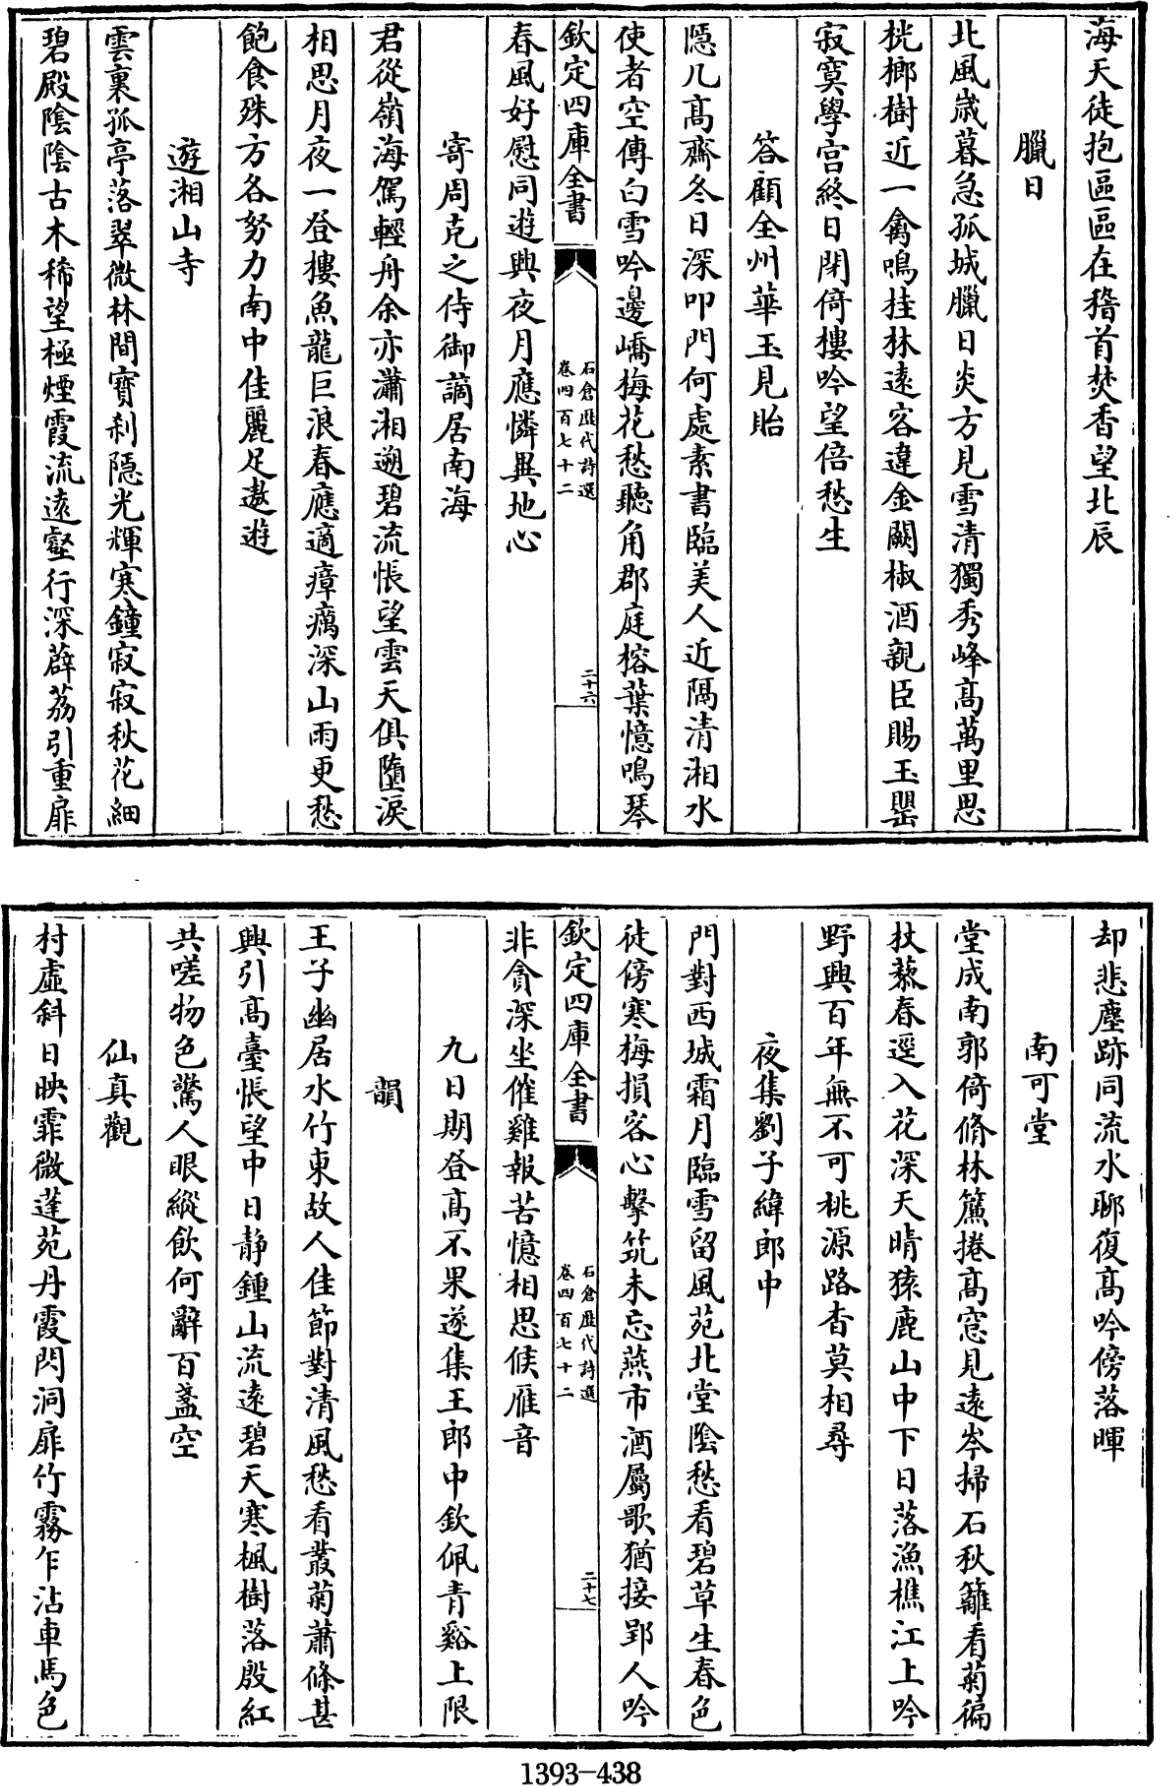 海天徒抱區區在稽首焚香望北辰
臘日
北風歳暮急孤城臘日炎方見雪清獨秀峰高萬里思
桄榔樹近一禽鳴桂林遠客違金闕椒酒親臣賜玉罌
寂寞學宫終日閉倚樓吟望倍愁生
答顧全州華玉見貽
隠几高齋冬日深叩門何處素書臨美人近隔清湘水
使者空傳白雪吟邊嶠梅花愁聽角郡庭榕葉憶鳴琴
欽定四庫全書
石倉歴代詩選
卷四百七十二
二十六
春風好慰同遊興夜月應憐異地心
寄周克之侍御謫居南海
君從嶺海駕輕舟余亦瀟湘遡碧流悵望雲天俱墮淚
相思月夜一登樓魚龍巨浪春應適瘴癘深山雨更愁
飽食殊方各努力南中佳麗足遨遊
遊湘山寺
雲裏孤亭落翠微林間寶刹隠光輝寒鐘寂寂秋花細
碧殿陰陰古木稀望極煙霞流遠壑行深薜荔引重扉
却悲塵跡同流水聊復高吟傍落暉
南可堂
堂成南郭倚脩林簾捲高窓見遠岑掃石秋籬看菊徧
杖藜春逕入花深天晴猿鹿山中下日落漁樵江上吟
野興百年無不可桃源路杳莫相尋
夜集劉子緯郎中
門對西城霜月臨雪留風苑北堂陰愁看碧草生春色
徒傍寒梅損客心擊筑未忘燕市酒屬歌猶接郢人吟
欽定四庫全書
石倉歴代詩選
卷四百七十二
二十七
非貪深坐催雞報苦憶相思候雁音
九日期登高不果遂集王郎中欽佩青谿上限
韻
王子幽居水竹東故人佳節對清風愁看叢菊蕭條甚
興引高臺悵望中日静鍾山流遠碧天寒楓樹落殷紅
共嗟物色驚人眼縱飲何辭百盞空
仙真觀
村虛斜日映霏微蓬苑丹霞閃洞扉竹霧乍沾車馬色
1393-438